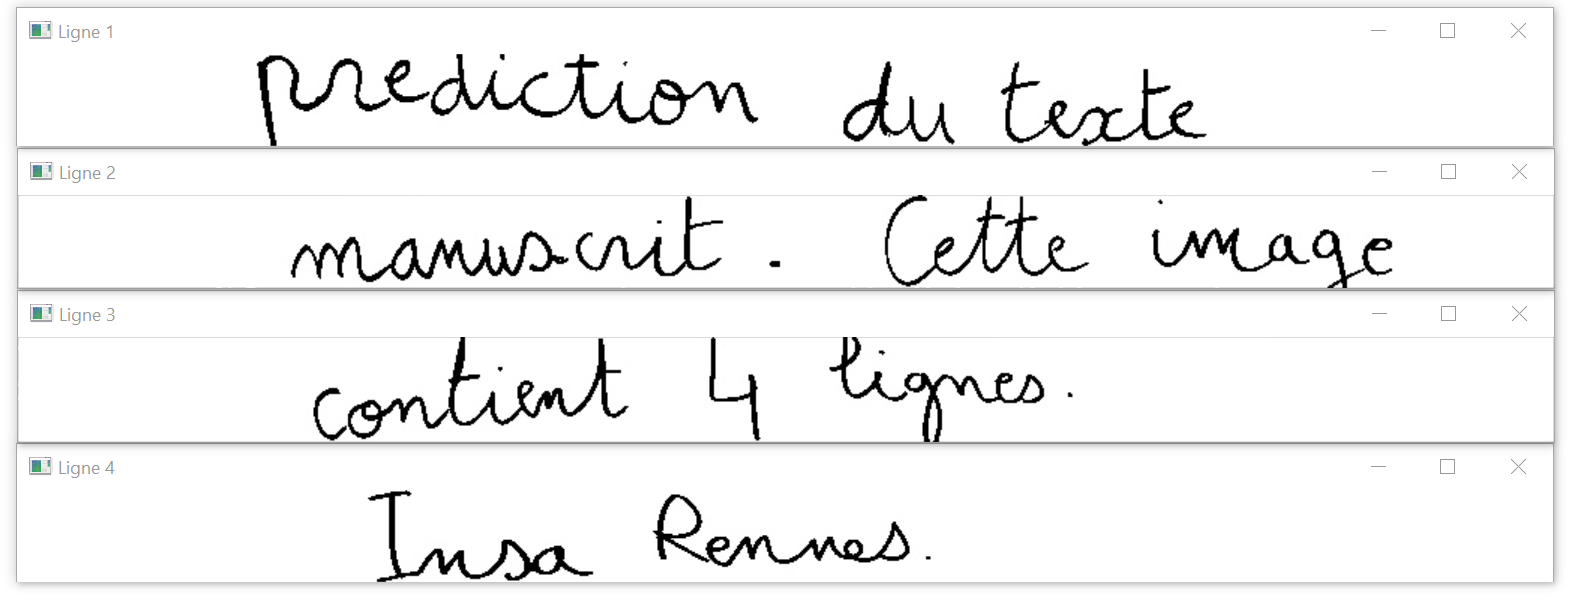 Ligne 1
prediction du texte
Ligne 2
manuscrit. Cette image
Ligne 3
contient 4 lignes.
Ligne 4
Insa Rennes.